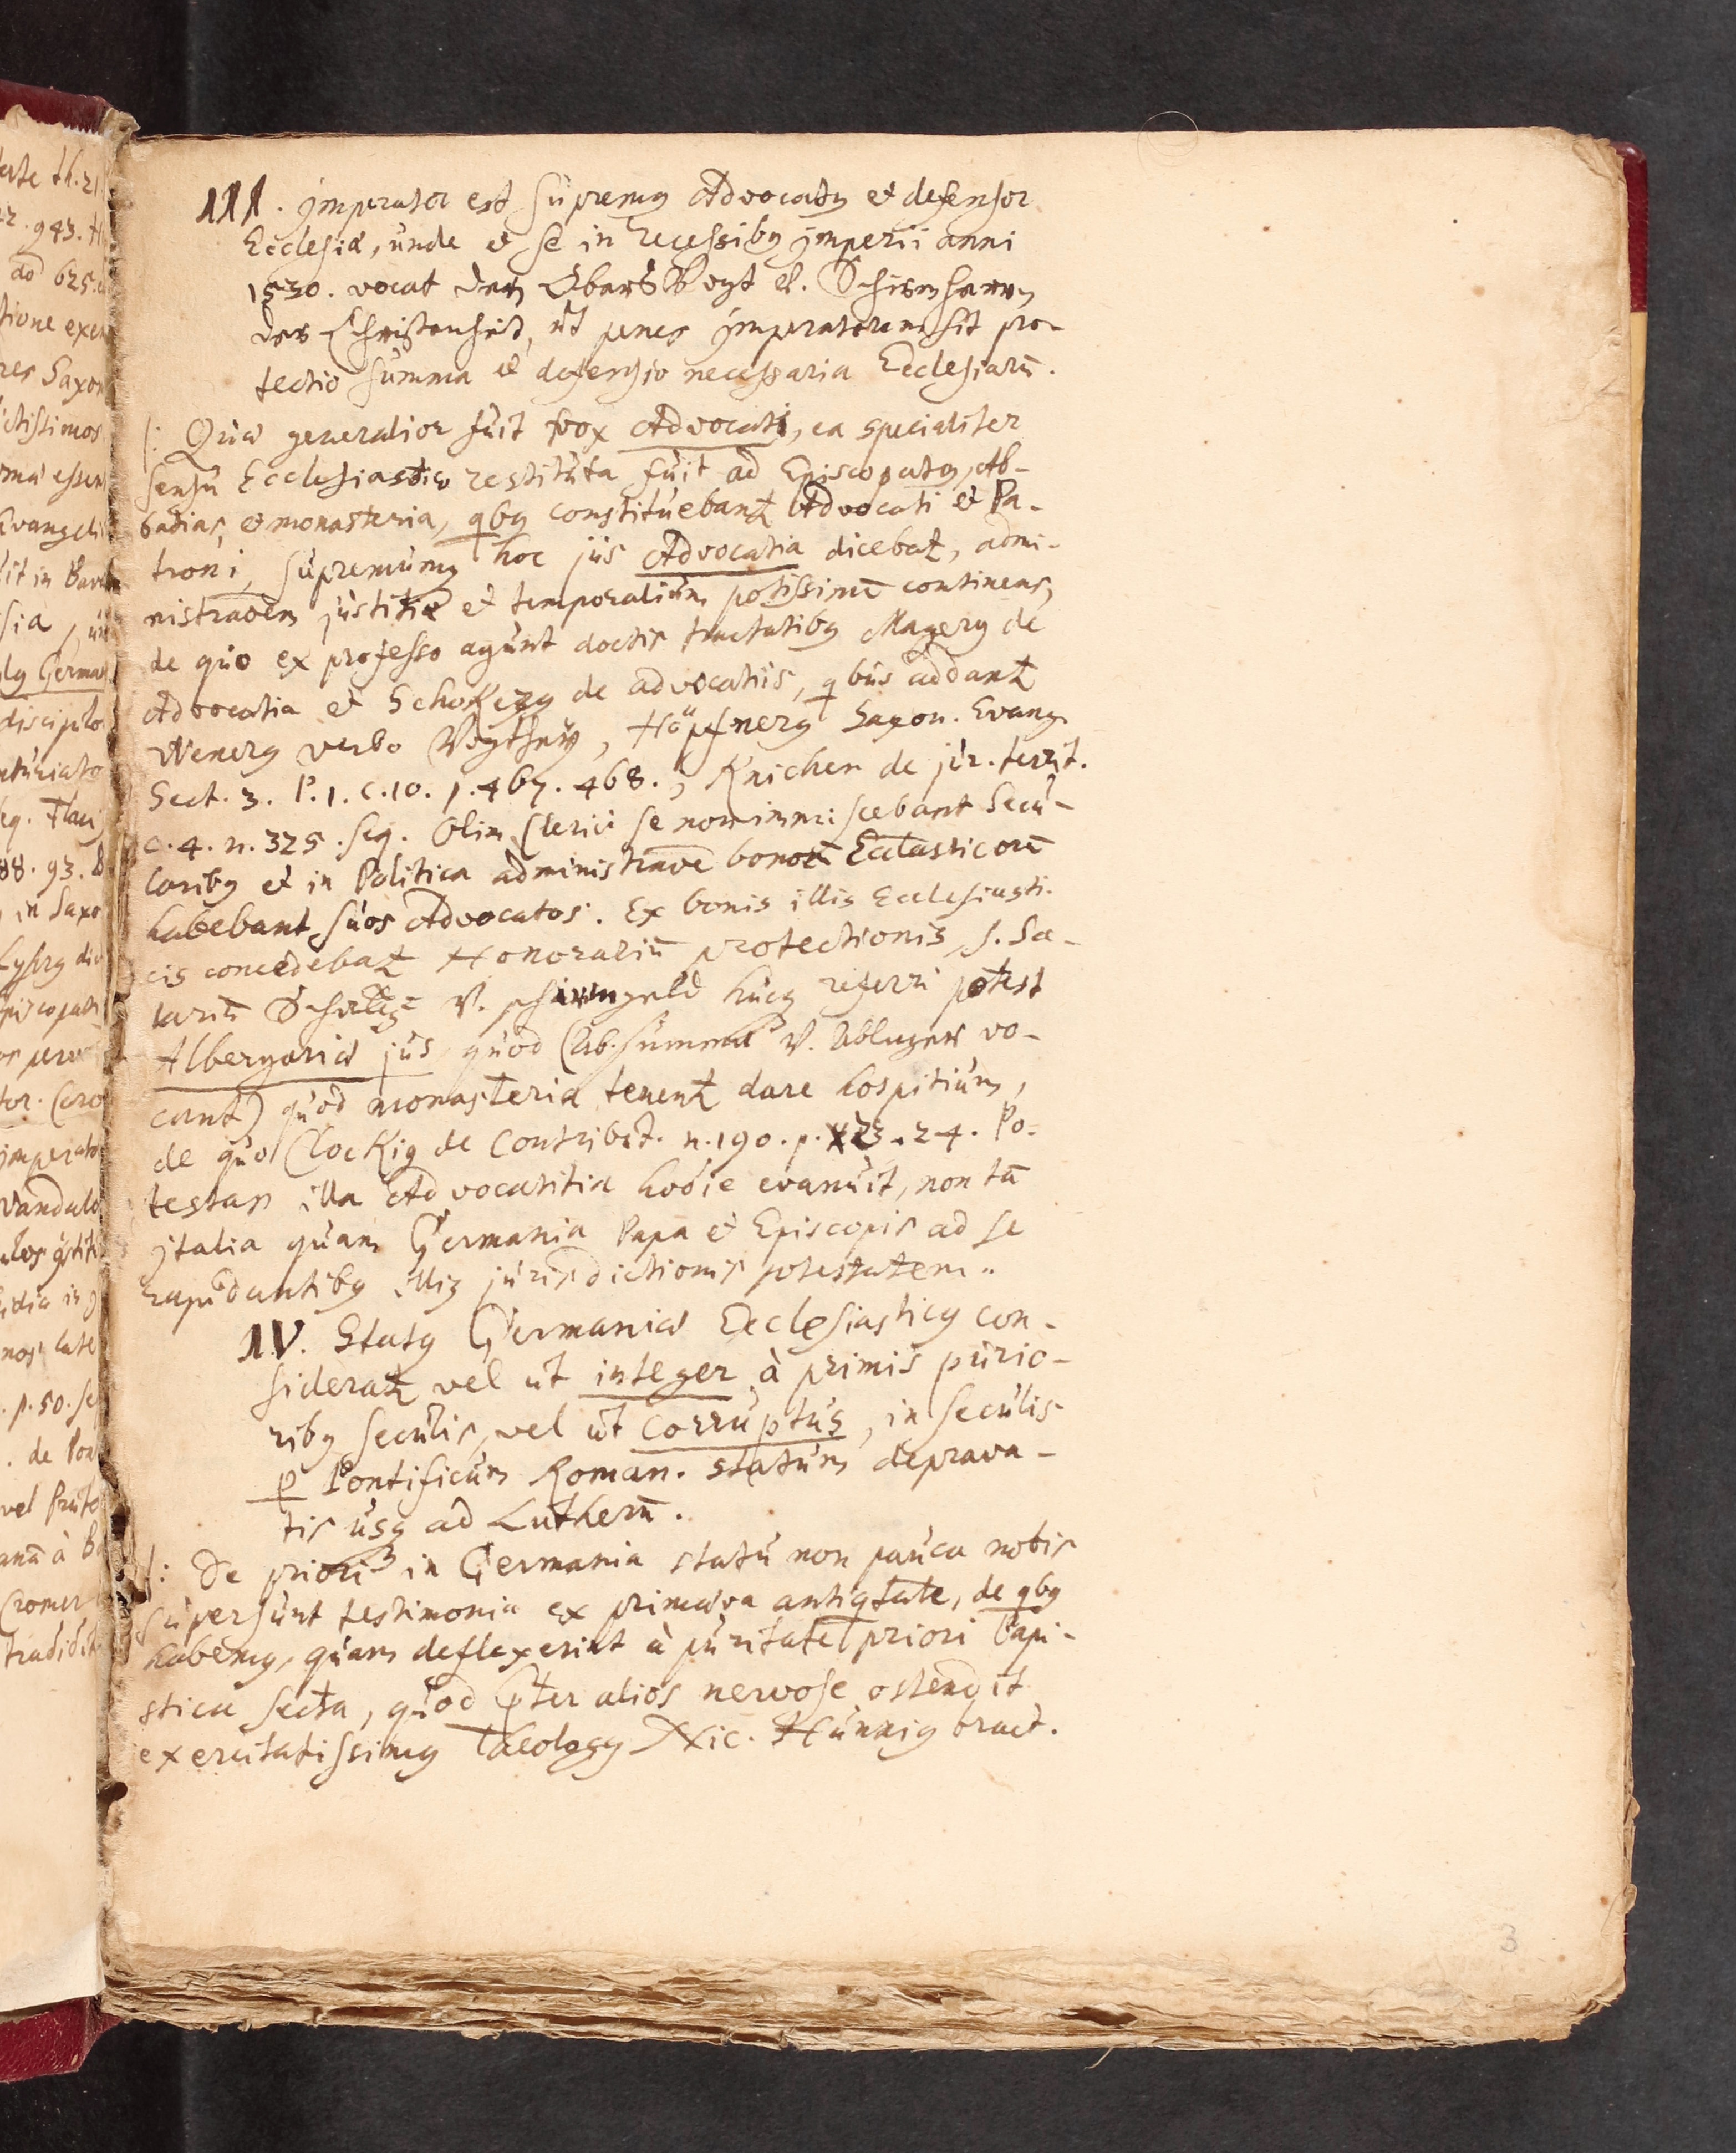 III. Imperator est supremus Advocatus et defensor
Ecclesiæ, unde et se in recessibus Imperii anni
1530. vocat den Obersten Vogt u. Schirmherrn
der Christenheit, ut penes Imperatorem sit pro-
tectio summa et defensio necessaria Ecclesiarū.
/: Quia generalior fuit vox Advocati, ea specialiter
sensu Ecclesiastico restituta fuit ad Episcopatus, Ab-
batias, et monasteria, qbus constituebantur Advocati et Pa-
troni, supremumque hoc jus Advocatia dicebatur, admi-
nistraōem justitiæ et temporalium potissimē continens,
de quo ex professo agunt doctis tractatibus Magerus de
Advocatia et Schokerus de advocatiis, qbus addantur
Wenerus verbo Vogtheÿ, Höpfnerus Saxon. Evang.
Sect. 3. P. 1. c. 10. p. 467. 468., Knichen de jur. territ.
c. 4. n. 325. seq. Olim Clerici se non immiscebant Secu-
laribus et in Politica administraōe bonorū Ecclasticorū
habebant suos Advocatos. Ex bonis illis Ecclesiasti-
cis concedebatur Honorariū protectionis, s. Sa-
lariū Schutz= u. schirmgeld huc referri potest
Albergariæ jus, quod (Ab. summa u. Ablager vo-
cant) quod monasteria tenentur dare hospitium,
de quo Klockius de Contribut. n. 190. p. 23. 24. Po-
testas illa Advocatitia hodie evanuit, non tā
Italia quam Germania Papa et Episcopis ad se
rapientibus illius jurisdictionis potestatem..
IV. Status Germaniæ Ecclesiasticus con-
sideratur vel ut integer à primis purio-
ribus seculis, vel ut corruptus, in seculis
p Pontificum Roman. statum deprava-
tis usque ad Lutherū.
/: De priori in Germania statu non pauca nobis
supersunt testimonia ex primæva antiqtate, de qbus
habemus, quam deflexerint à puritate priori Papi-
stica secta, quod pter alios nervose ostendit
exercitatissimus Theologus Nic. Hunnius tract.
3